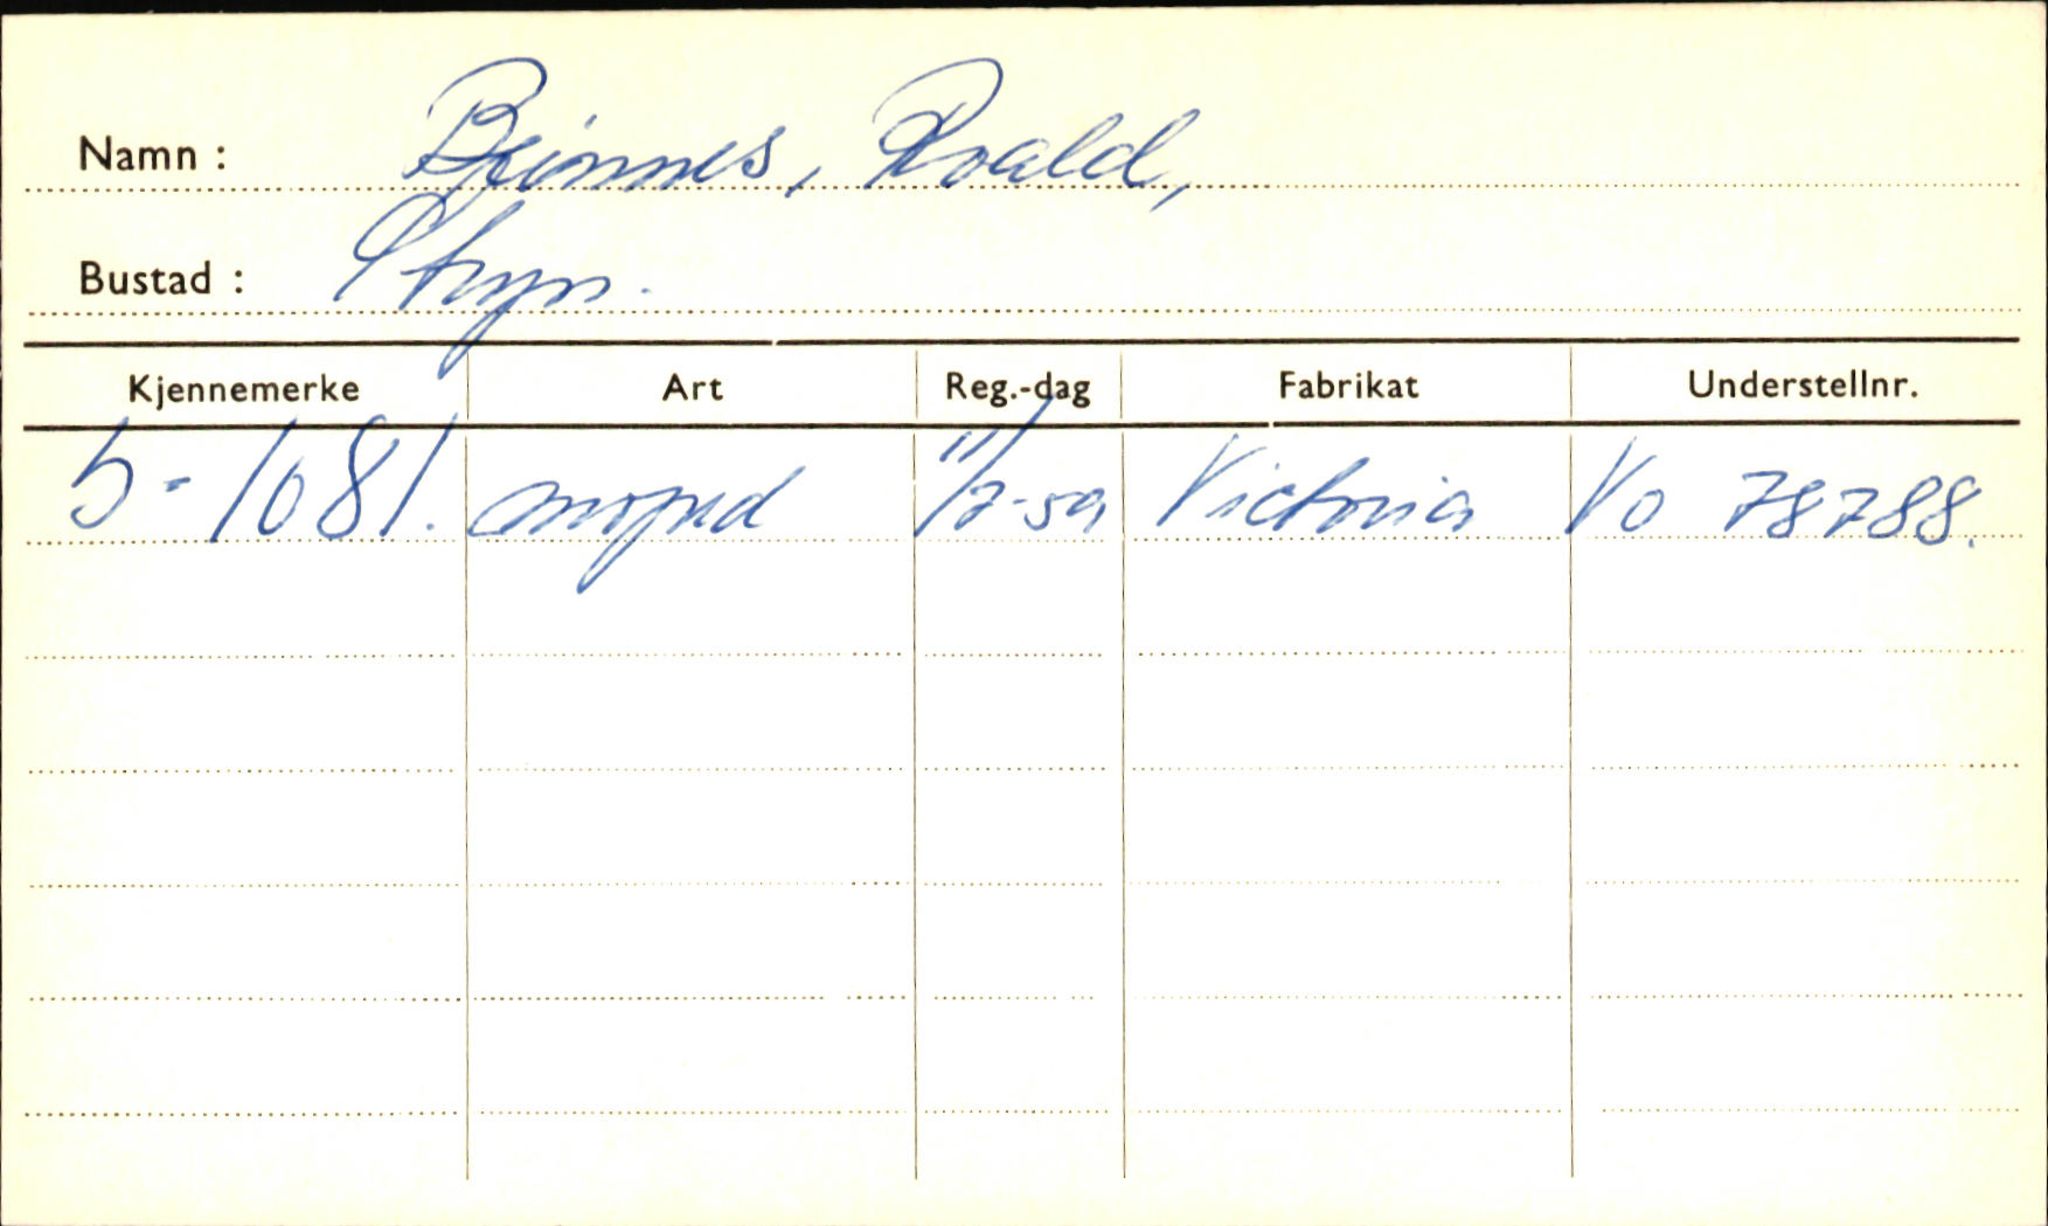 Namn : Beinnes, Roald,
Bustad : Stryn.
Kjennemerke Art Reg.-dag Fabrikat Understellnr.
S-1081. moped 11/7-59 Victoria Vo 78788.